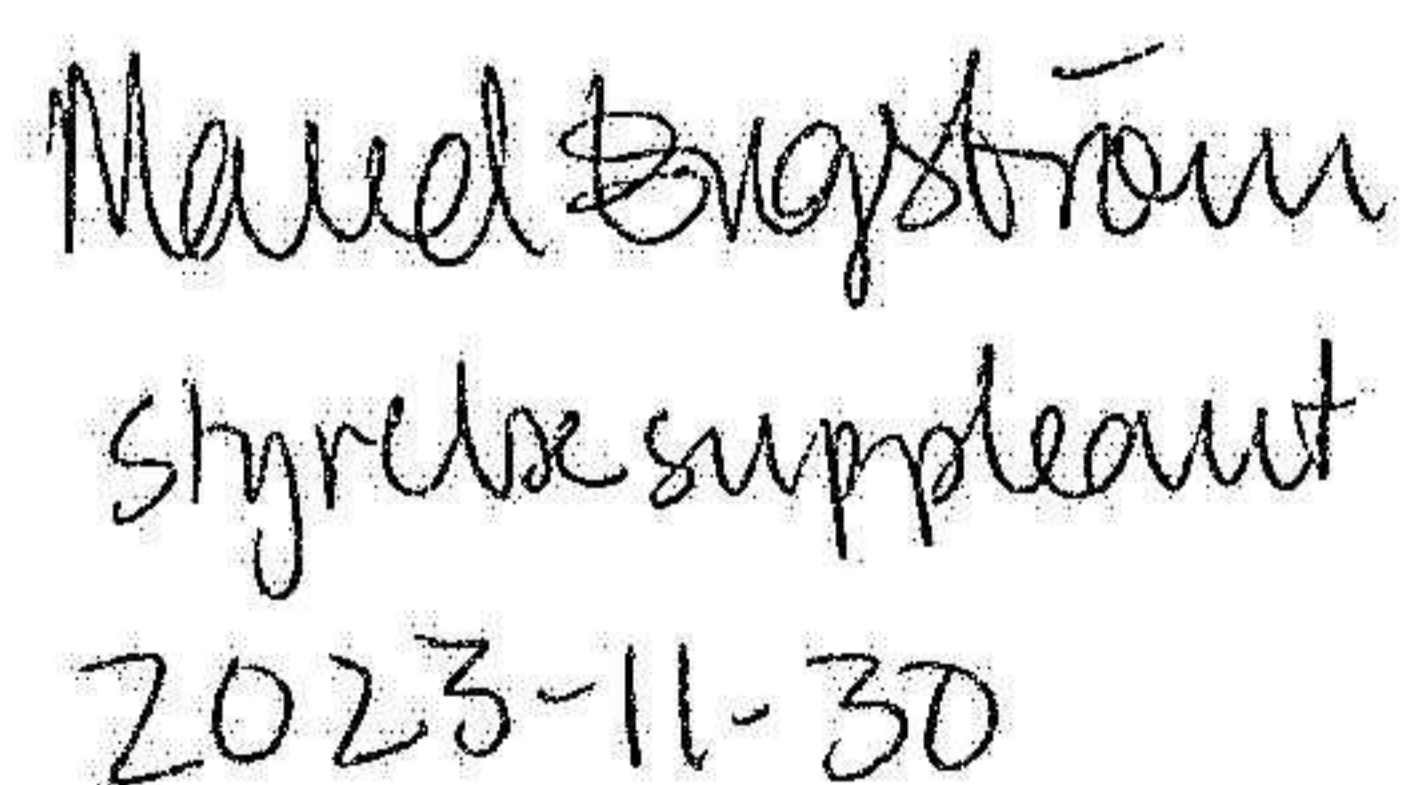 Maud Engström
styrelsesuppleant
2023-11-30